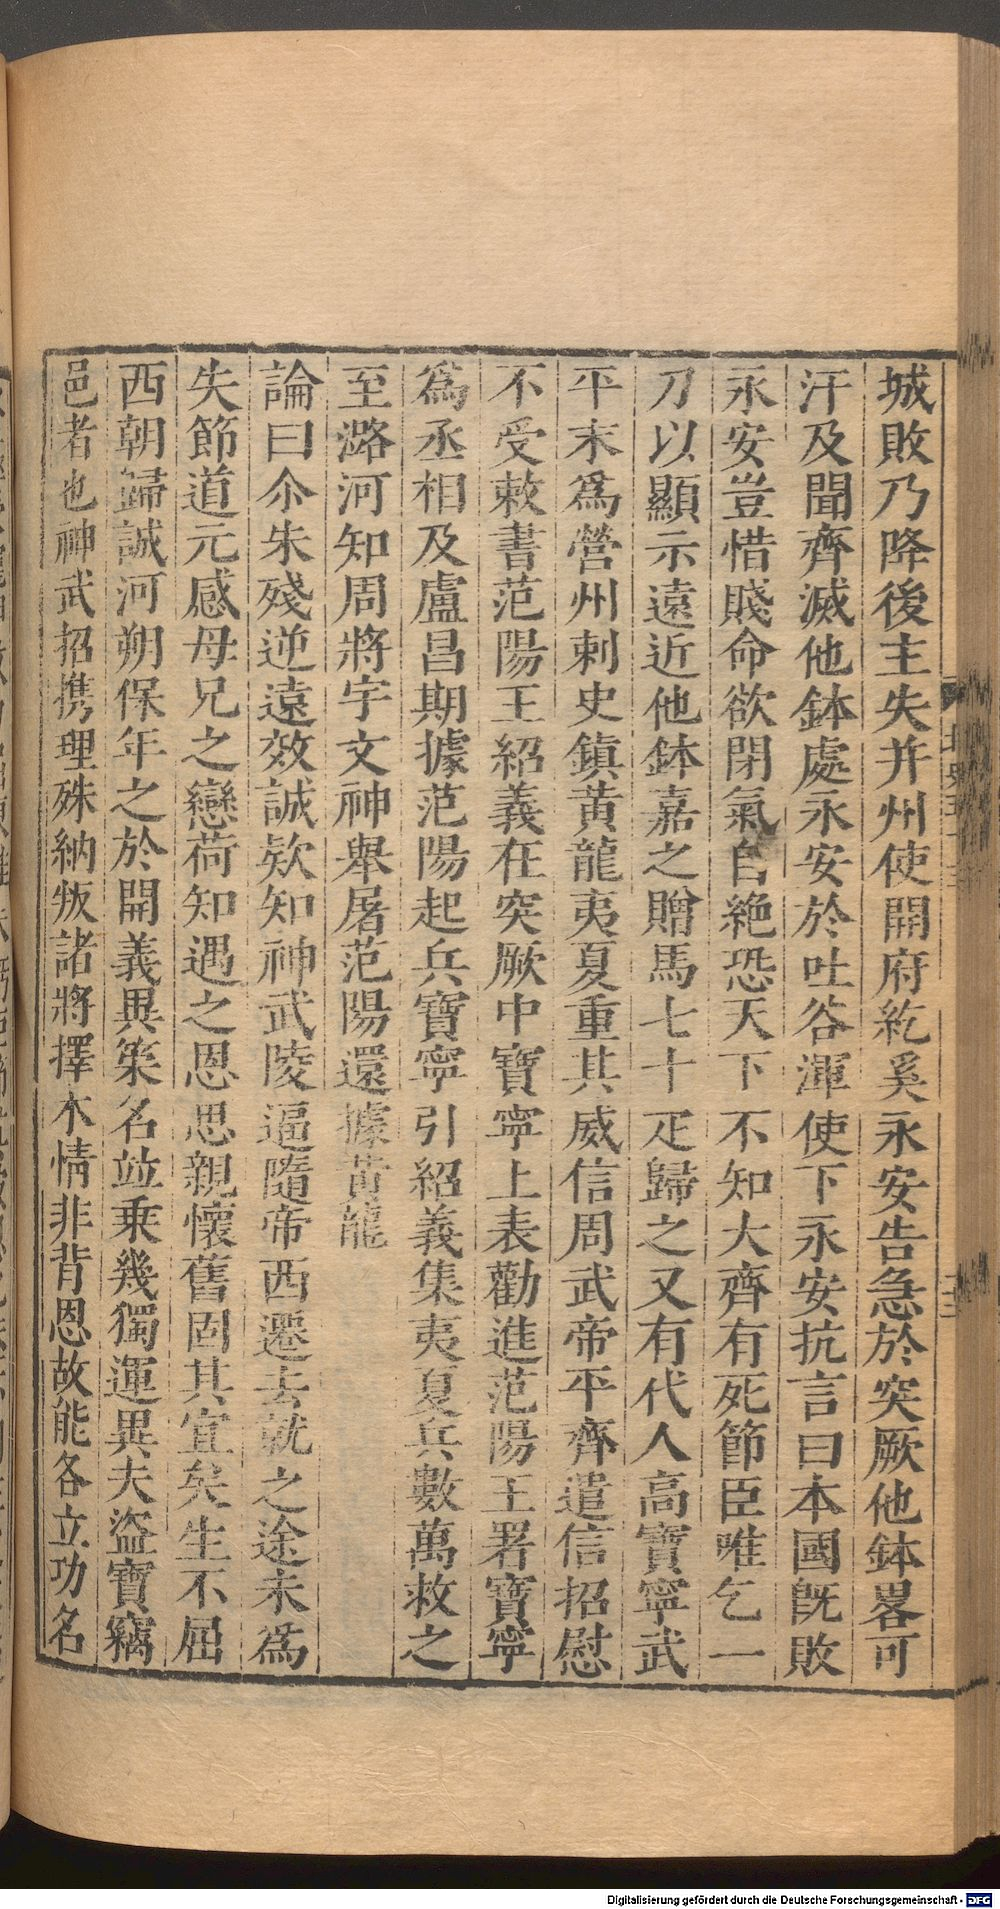 城敗乃降後主失并州使開府紇奚永安告急於突厥他鉢畧可
汗及聞齊滅他鉢處永安於吐谷渾使下永安抗言曰本國旣敗
永安豈惜賤命欲閉氣自絶恐天下不知大齊有死節臣唯乞一
刀以顯示遠近他鉢嘉之贈馬七十疋歸之又有代人高寶寧武
平末爲營州刺史鎮黄龍夷夏重其威信周武帝平齊遣信招慰
不受敕書范陽王紹義在突厥中寶寧上表勸進范陽王署寶寧
爲丞相及盧昌期據范陽起兵寶寧引紹義集夷夏兵數萬救之
至潞河知周將宇文神舉屠范陽還據黄龍
論曰尒朱殘逆遠效誠欵知神武陵逼隨帝西遷去就之途未爲
失節道元感母兄之戀荷知遇之恩思親懷舊固其宜矣生不屈
西朝歸誠河朔保年之於開義異策名並乗幾獨運異夫盗寶竊
邑者也神武招携理殊納叛諸將擇木情非背恩故能各立功名
Digitalisierung gefördert durch die Deutsche Forschungsgemeinschaft - DFG